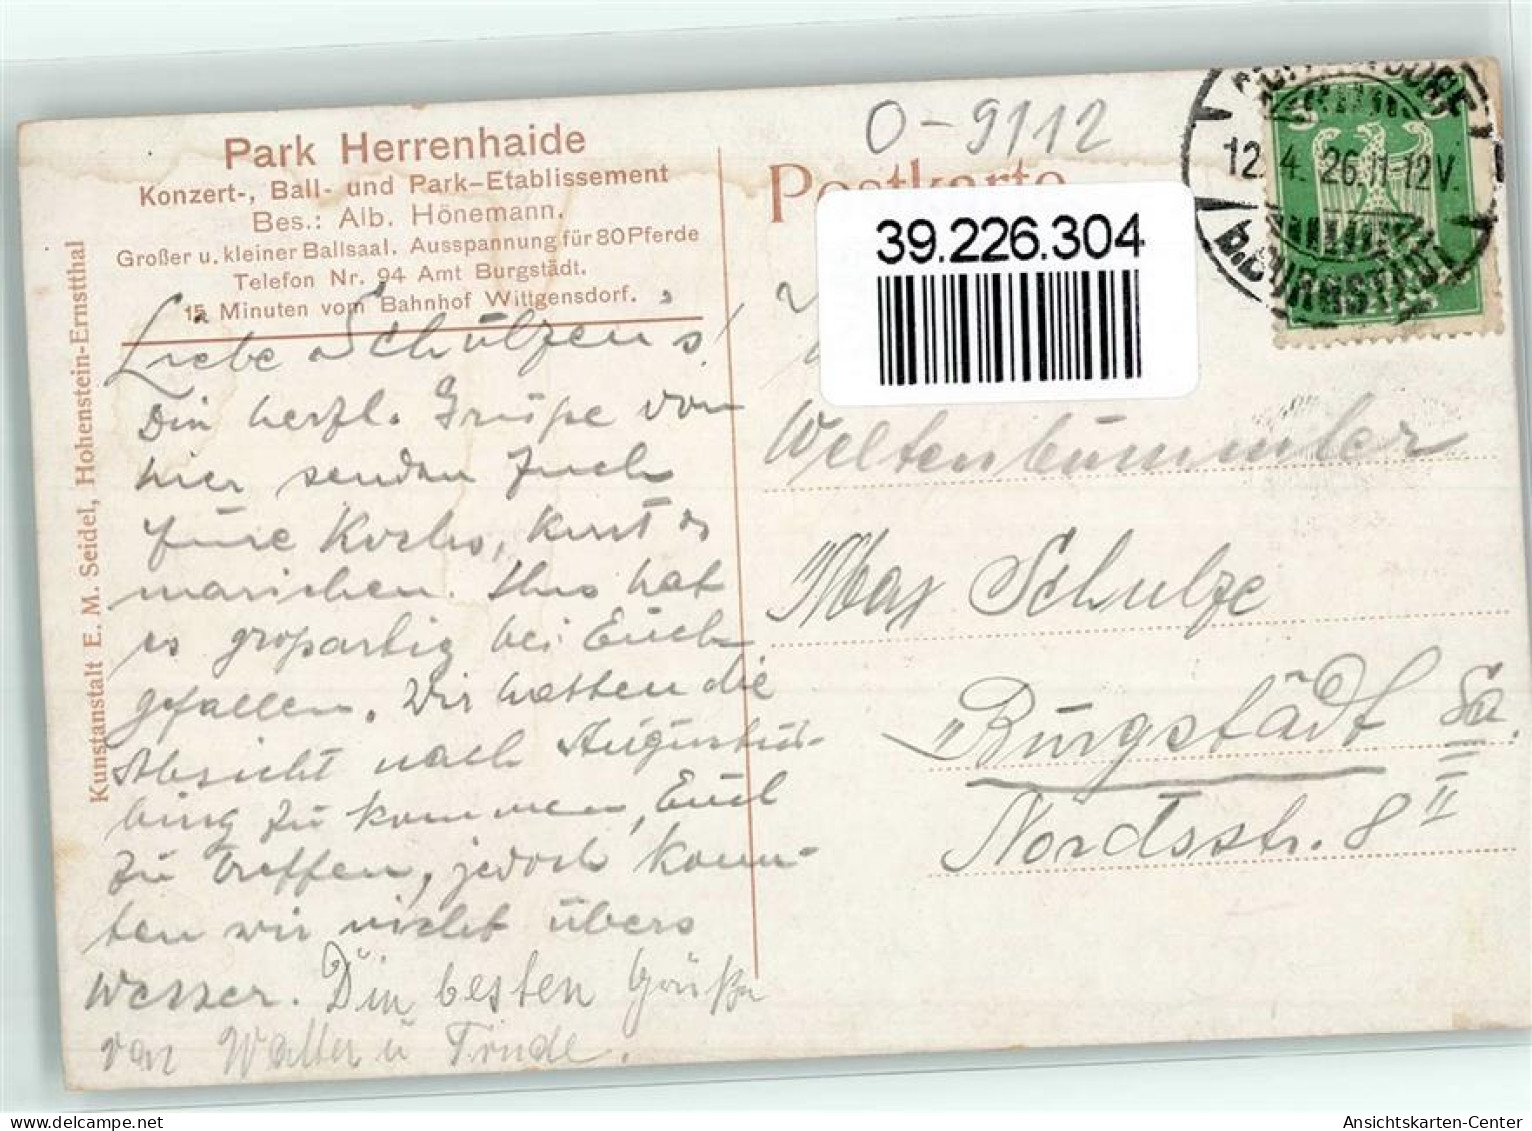 Park Herrenhaide
Konzert-, Ball- und Park-Etablissement
Bes.: Alb. Hönemann.
Großer u. kleiner Ballsaal. Ausspannung für 80 Pferde
Telefon Nr. 94 Amt Burgstädt.
15 Minuten vom Bahnhof Wittgensdorf.
Kunstanstalt E. M. Seidel, Hohenstein-Ernstthal
Liebe Schulzens!
Die herzl. Grüße von
hier senden Euch
Eure Kochs, Kurt
marschen. Uns hat
es großartig bei Euch
gefallen. Wir hatten die
Absicht nach Augustus-
burg zu kommen, Euch
zu treffen, jedoch konn-
ten wir nicht übers
Wasser. Die besten Grüße
von Walter u Trude.
O-9112
Postkarte
39.226.304
12.4.26.11-12V.
b.BURGSTÄDT
Weltenbummler
Max Schulze
Burgstädt Sa.
Nordstr. 8 II
Ansichtskarten-Center